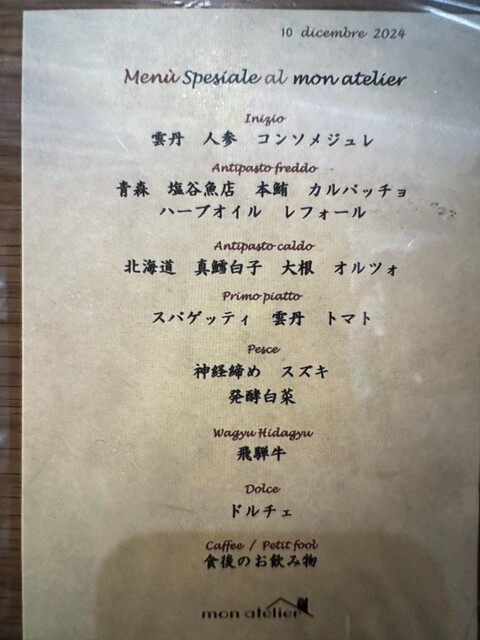 10 dicembre 2024
Menù Spesiale al mon atelier
Inizio
雲丹　人参　コンソメジュレ
Antipasto freddo
青森　塩谷魚店　本鮪　カルパッチョ
ハーブオイル　レフォール
Antipasto caldo
北海道　真鱈白子　大根　オルツォ
Primo piatto
スパゲッティ　雲丹　トマト
Pesce
神経締め　スズキ
発酵白菜
Wagyu Hidagyu
飛騨牛
Dolce
ドルチェ
Caffee / Petit fool
食後のお飲み物
mon atelier